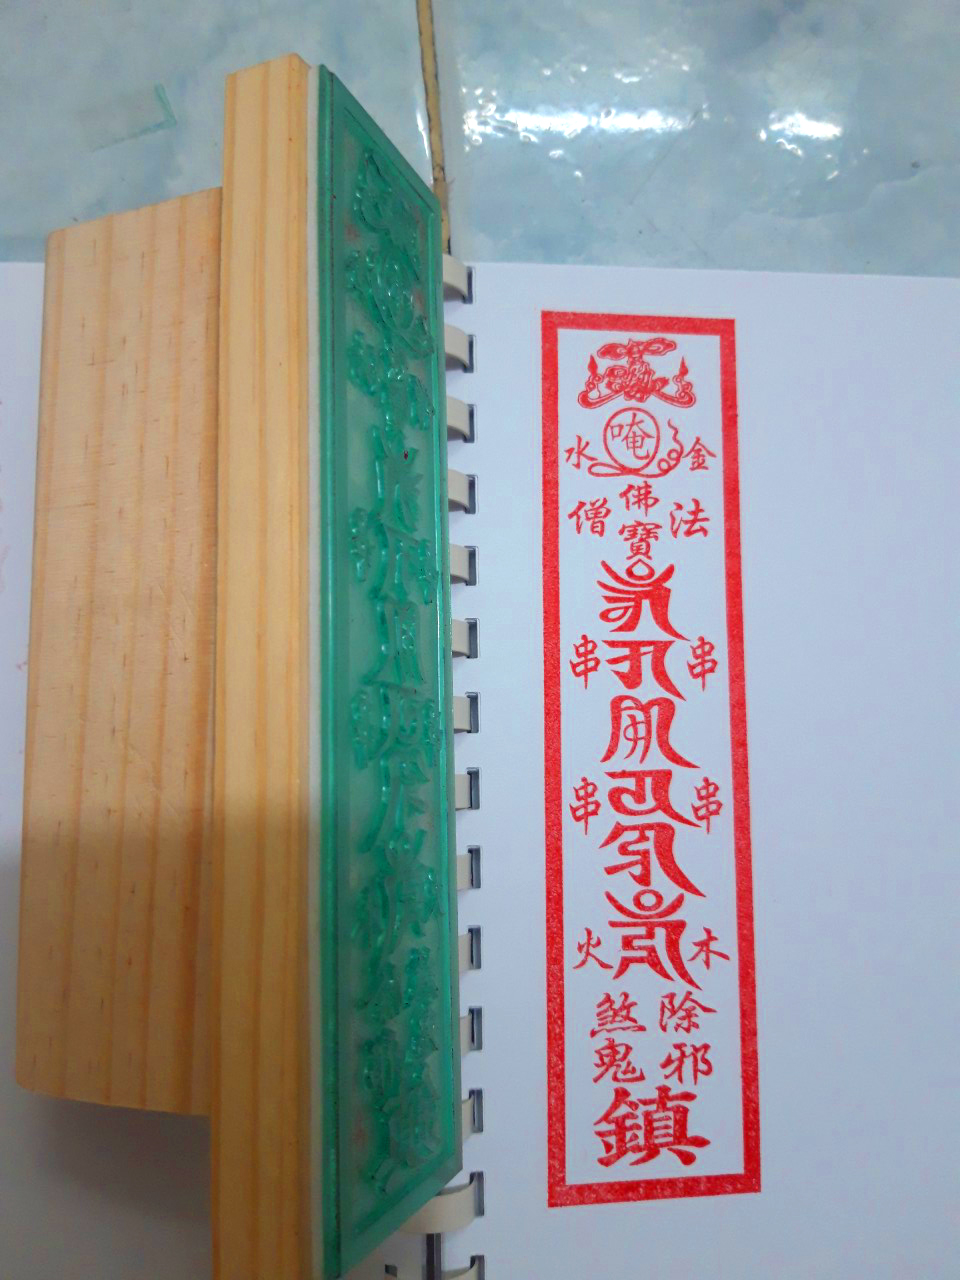 唵
金
水
佛寶
法
僧
串
串
串
串
木
火
除邪
煞鬼
鎮